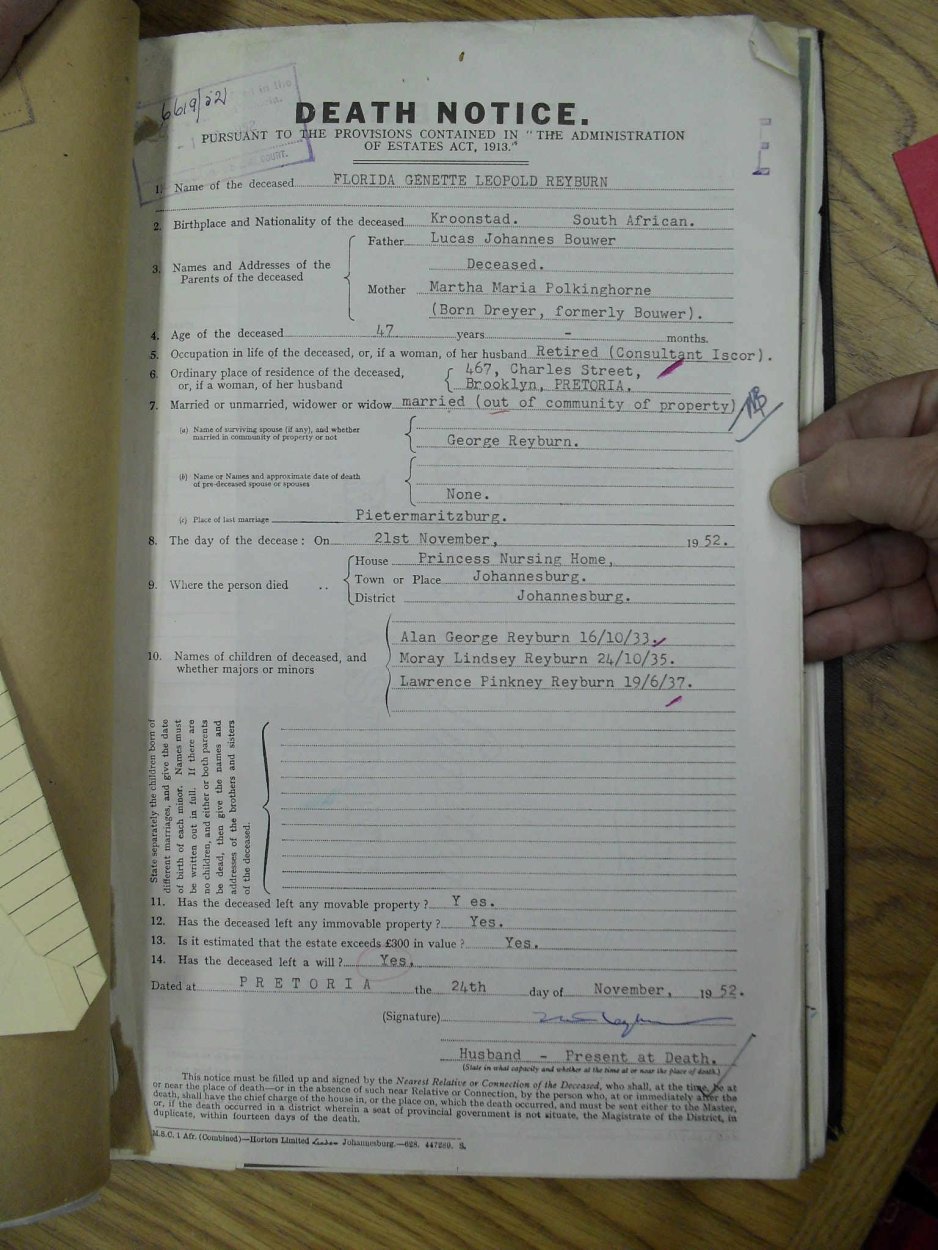 6619/52
DEATH NOTICE.
PURSUANT TO THE PROVISIONS CONTAINED IN "THE ADMINISTRATION
OF ESTATES ACT, 1913."
COURT.
1. Name of the deceased FLORIDA GENETTE LEOPOLD REYBURN
2. Birthplace and Nationality of the deceased Kroonstad. South African.
3. Names and Addresses of the Parents of the deceased
Father Lucas Johannes Bouwer
Deceased.
Mother Martha Maria Polkinghorne
(Born Dreyer, formerly Bouwer).
4. Age of the deceased 47 years - months.
5. Occupation in life of the deceased, or, if a woman, of her husband Retired (Consultant Iscor).
6. Ordinary place of residence of the deceased, 467, Charles Street,
or, if a woman, of her husband Brooklyn, PRETORIA,
7. Married or unmarried, widower or widow married (out of community of property)
NB
(a) Name of surviving spouse (if any), and whether
married in community of property or not
George Reyburn.
(b) Name or Names and approximate date of death
of pre-deceased spouse or spouses
None.
(c) Place of last marriage Pietermaritzburg.
8. The day of the decease: On 21st November, 1952.
9. Where the person died ..
House Princess Nursing Home,
Town or Place Johannesburg.
District Johannesburg.
10. Names of children of deceased, and
whether majors or minors
Alan George Reyburn 16/10/33.
Moray Lindsey Reyburn 24/10/35.
Lawrence Pinkney Reyburn 19/6/37.
State separately the children born of
different marriages, and give the date
of birth of each minor. Names must
be written out in full. If there are
no children, and either or both parents
be dead, then give the names and
addresses of the brothers and sisters
of the deceased.
11. Has the deceased left any movable property? Y es.
12. Has the deceased left any immovable property? Yes.
13. Is it estimated that the estate exceeds £300 in value? Yes.
14. Has the deceased left a will? Yes.
Dated at P R E T O R I A the 24th day of November, 1952.
(Signature)
Husband - Present at Death.
(State in what capacity and whether at the time at or near the place of death.)
This notice must be filled up and signed by the Nearest Relative or Connection of the Deceased, who shall, at the time, be at
or near the place of death—or in the absence of such near Relative or Connection, by the person who, at or immediately after the
death, shall have the chief charge of the house in, or the place on, which the death occurred, and must be sent either to the Master,
or, if the death occurred in a district wherein a seat of provincial government is not situate, the Magistrate of the District, in
duplicate, within fourteen days of the death.
M.S.C. 1 Afr. (Combined)—Hortors Limited Johannesburg.—628. 447269. S.